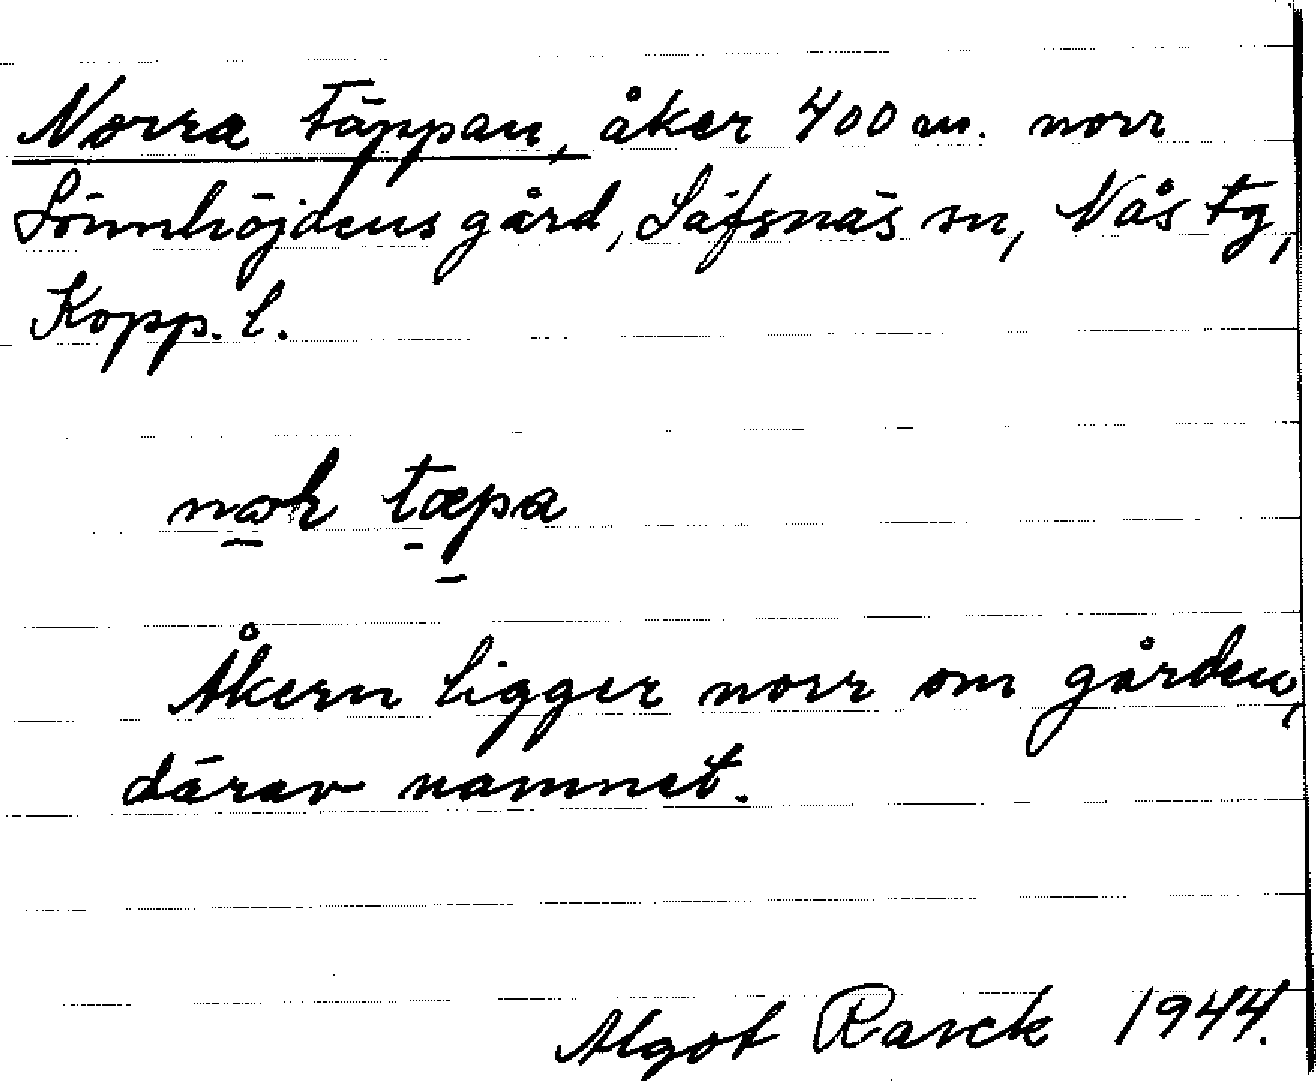 Norra Täppan, åker 400 m. norr
Lönnhöjdens gård, Säfsnäs sn, Nås tg,
Kopp. l.
täpa
Åkern ligger norr om gården,
därav namnet.
Algot Rasck 1944.